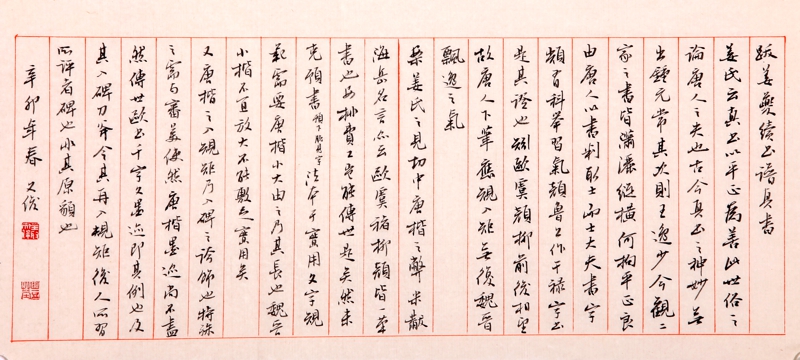 跋姜夔續書譜真書
姜氏云真書以平正為善此世俗之
論唐人之失也古今真書之神妙無
出鍾元常其次則王逸少今觀二
家之書皆瀟灑縱橫何拘平正良
由唐人以書判取士而士大夫書字
類有科舉習氣顏魯公作干祿字書
是其證也矧歐虞顏柳前後相望
故唐人下筆應規入矩無復魏晉
飄逸之氣
案姜氏之見切中唐楷之弊米黻
海岳名言亦云歐虞褚柳顏皆一筆
書也安排費工豈能傳世是矣然未
書法本于實用文字規
範需要唐楷小大由之乃其長也魏晉
小楷不宜放大不能敷之實用矣
又唐楷之入規矩乃入碑之飾也特殊
之需與審美使然唐楷墨迹而不盡
然傳世歐書千字文墨迹即其例也及
其入碑刀筆令其再入規矩後人所習
所評者碑也非其原貌也
辛卯年春